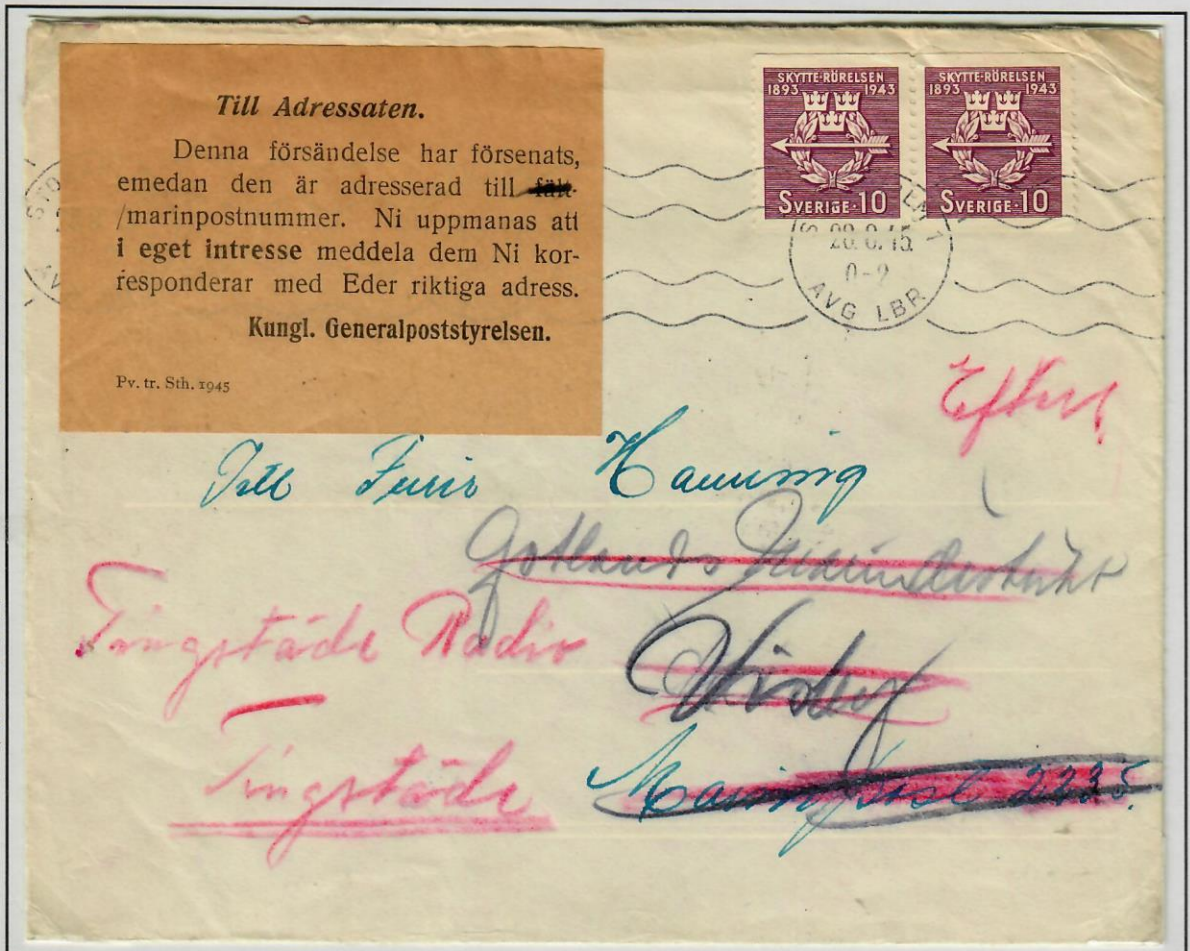 Till Adressaten.
Denna försändelse har försenats,
emedan den är adresserad till fält-
/marinpostnummer. Ni uppmanas att
i eget intresse meddela dem Ni kor-
responderar med Eder riktiga adress.
Kungl. Generalpoststyrelsen.
Pv. tr. Sth. 1945
SKYTTE-RÖRELSEN
1893 1943
SVERIGE·10
SKYTTE-RÖRELSEN
1893 1943
SVERIGE·10
0-2
AVG LBR
Efters
Furir
Gotlands
Visby
Tingstäde Radio
Tingstäde
Marinpost 2235.